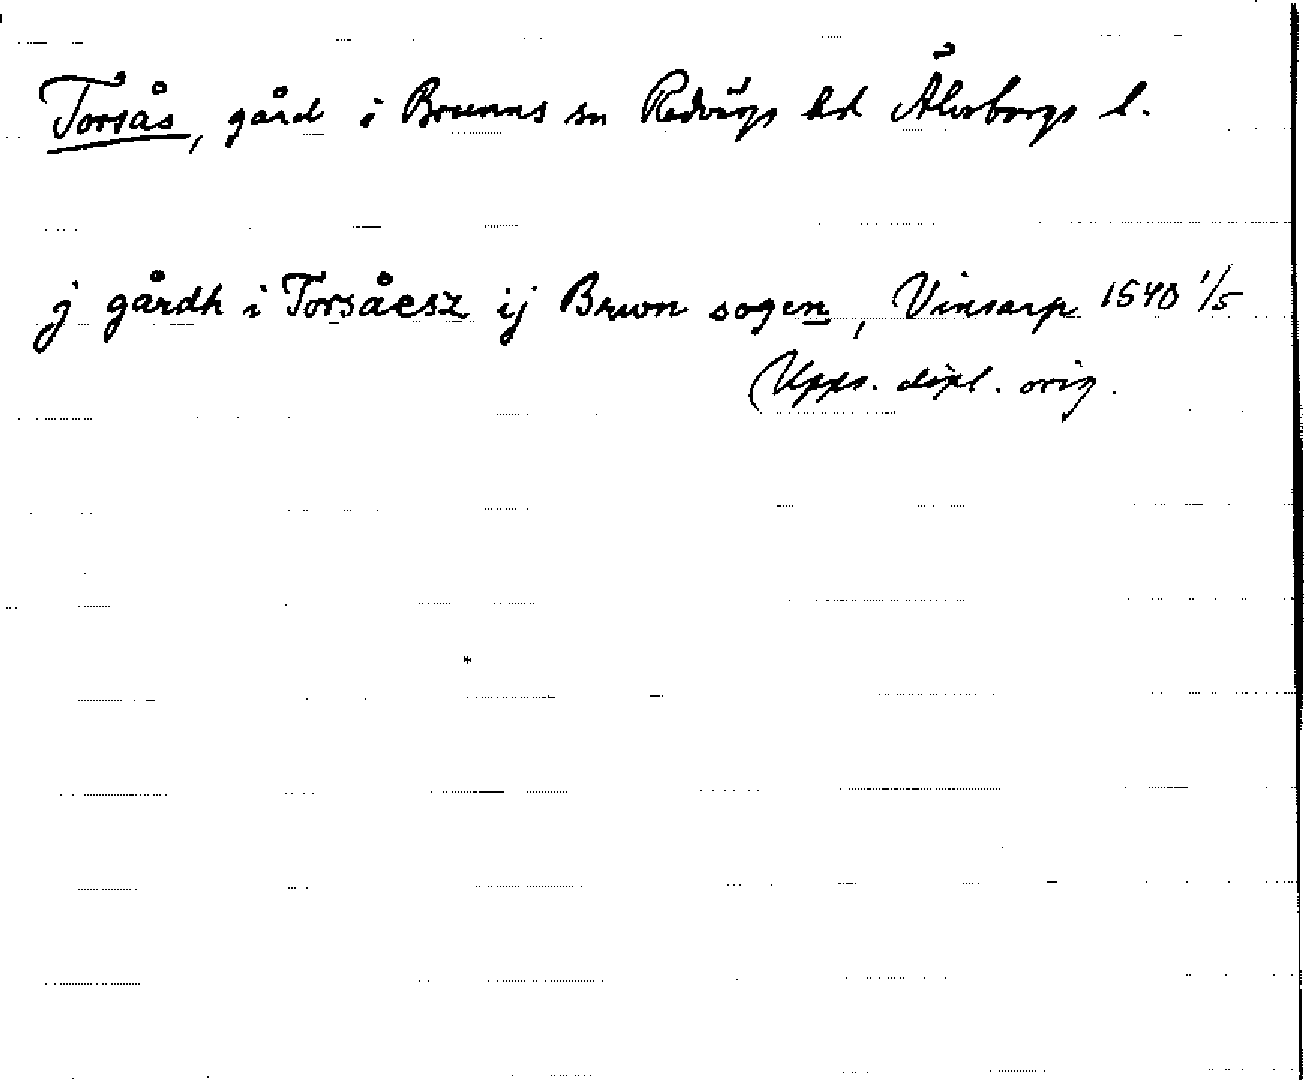 Torsås, gård i Brunns sn Redvägs hd Älvsborgs l.
j gårdh i Torsåesz ij Brwn sogen, Vinsarp 1540 1/5
(Upps. dipl. orig.